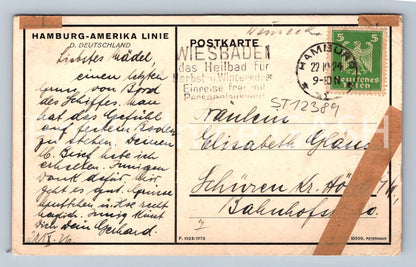 HAMBURG-AMERIKA LINIE
D. DEUTSCHLAND
POSTKARTE
WIESBADEN
das Heilbad für
Herbst u. Winterkur
Einreise frei mit
Personalausweis
HAMBURG
22.10.24
9-10
5 5
Deutsches
Reich
ST12389
Liebstes Mädel,
einen letzten
Gruß von Bord
des Schiffes. Man
hat das Gefühl
auf festem Boden
zu stehen. Deinen
l. Brief habe ich
erhalten. Innigen
Dank dafür. Mir
geht es gut. Grüsse
recht
herzlich. Innig küsst
Dich Dein Gerhard.
Fräulein
Elisabeth
Schüren Kr. Hörde i/W.
Bahnhofstr.
F. 1023/1773
10000. PETERMANN